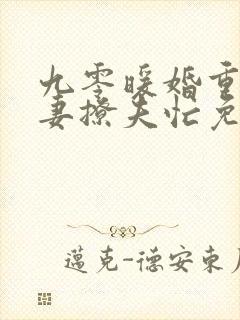 九零暖婚重
妻撩夫忙免
邁克-德安東尼